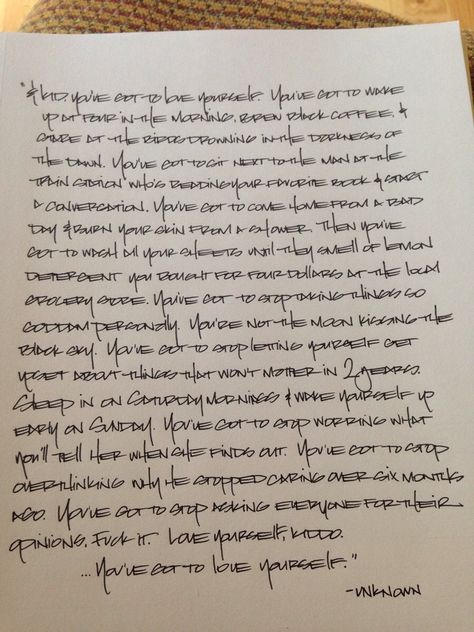 "& kid, you've got to love yourself. You've got to wake
up at four in the morning, brew black coffee, &
stare at the birds drowning in the darkness of
the dawn. You've got to sit next to the man at the
train station who's reading your favorite book & start
a conversation. You've got to come home from a bad
day & burn your skin from a shower. Then you've
got to wash all your sheets until they smell of lemon
detergent you bought for four dollars at the local
grocery store. You've got to stop taking things so
goddam personally. You're not the moon kissing the
black sky. You've got to stop letting yourself get
upset about things that won't mother in 2 years.
Sleep in on Saturday mornings & wake yourself up
early on Sunday. You've got to stop worring what
you'll tell her when she finds out. You've got to stop
overthinking why he stopped caring over six months
ago. You've got to stop asking everyone for their
opinions. Fuck it. Love yourself, kiddo.
...You've got to love yourself."
-unknown